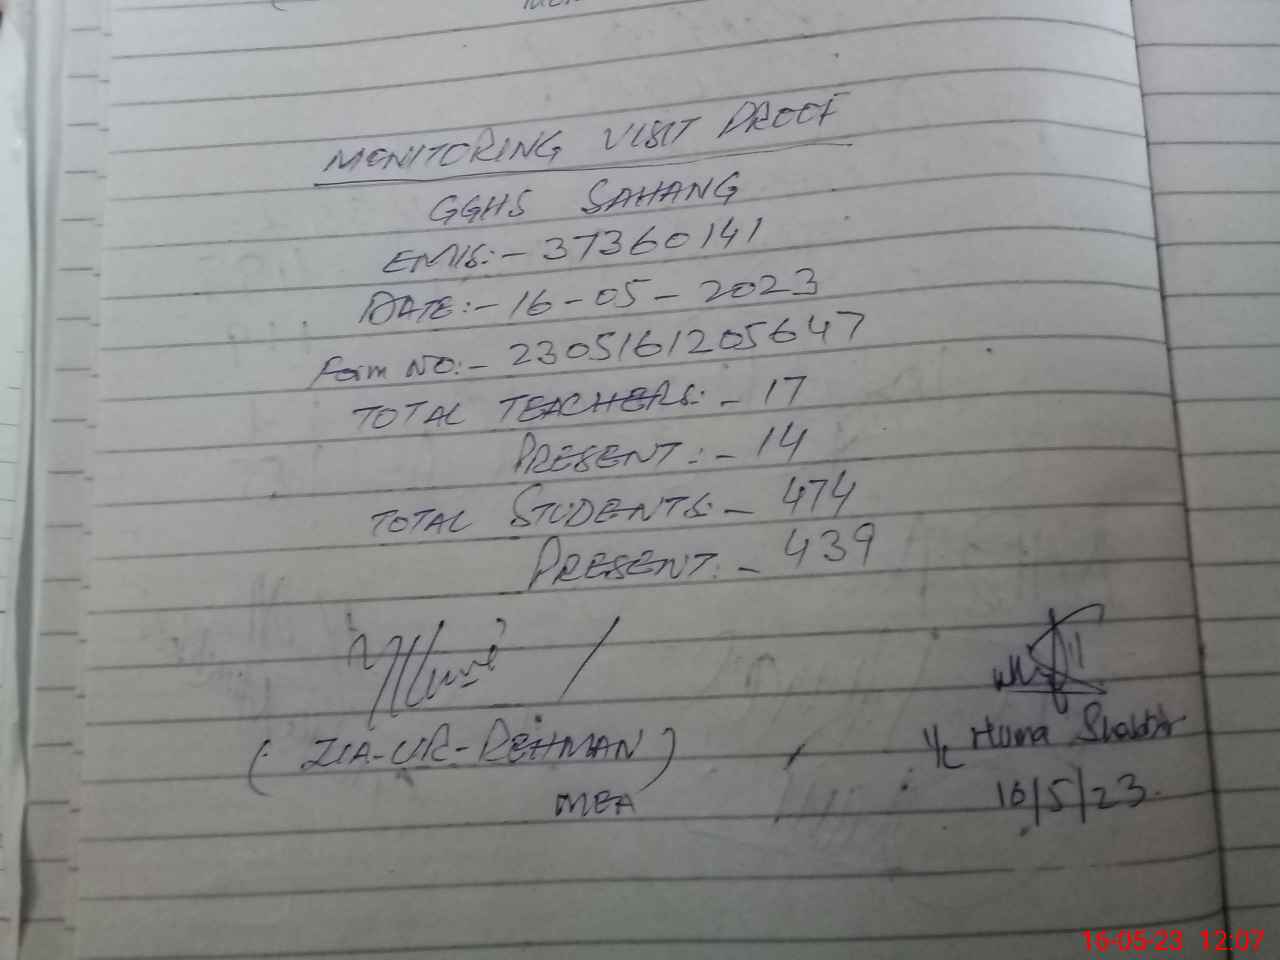 MONITORING VISIT PROOF
GGHS SAHANG
EMIS:- 37360141
DATE:- 16-05-2023
Form NO:- 2305161205647
TOTAL TEACHERS:- 17
PRESENT:- 14
TOTAL STUDENTS:- 474
PRESENT:- 439
(ZIA-UR-REHMAN)
MEA
I/C Huma
16/5/23.
16-05-23 12:07